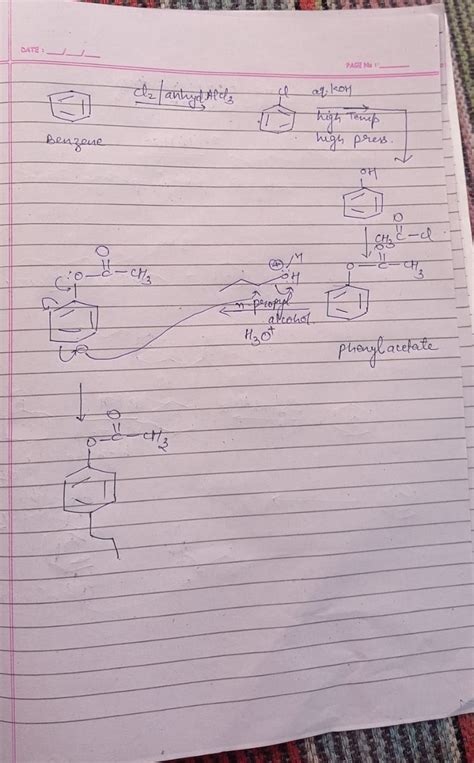 DATE: __/__/__
PAGE No.:
Cl2/anhyd AlCl3
Cl
aq KOH
high Temp
high press.
Benzene
OH
O
CH3 C-Cl
O
O-C-CH3
phenylacetate
H
OH
n-propyl
alcohol
H3O+
O
:O-C-CH3
O
O-C-CH3